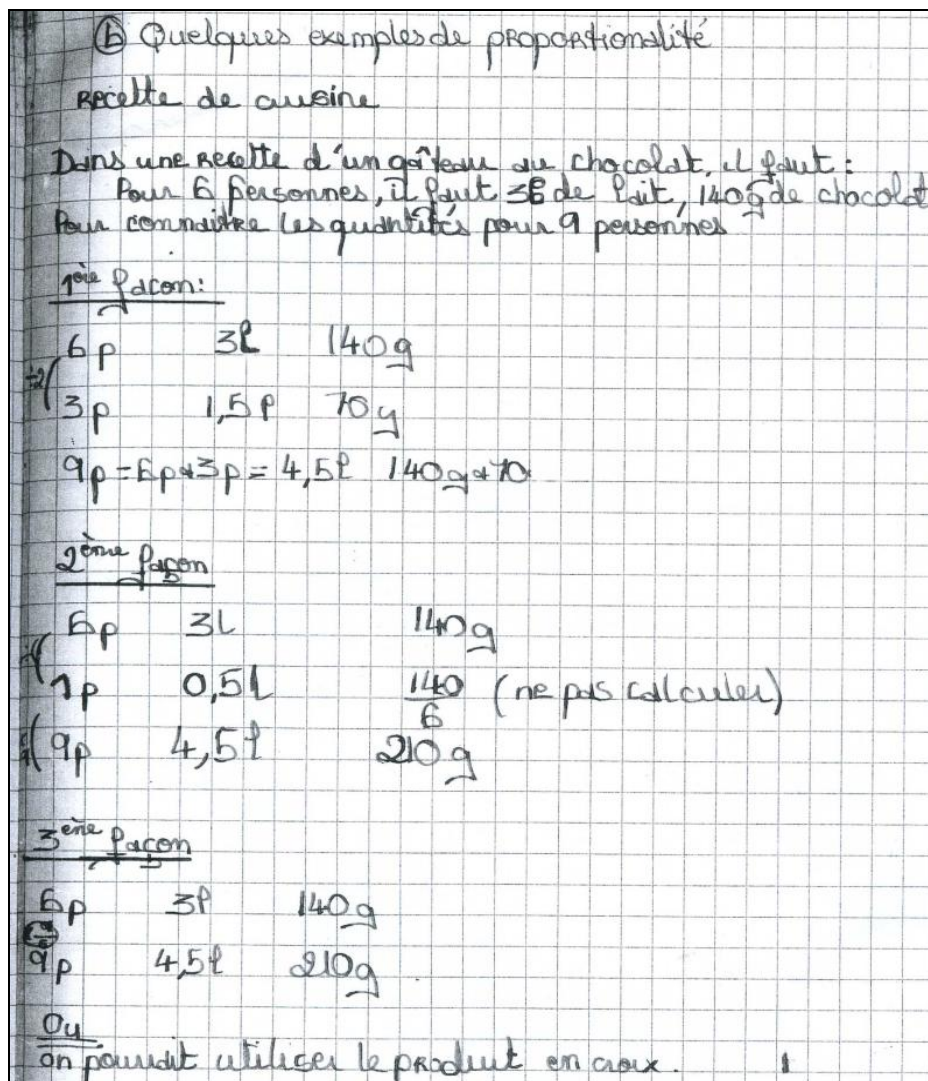 ⓑ Quelques exemples de proportionalité
Recette de cuisine
Dans une recette d'un gâteau au chocolat, il faut :
Pour 6 personnes, il faut 3l de lait, 140g de chocolat
Pour connaître les quantités pour 9 personnes
1ère facon:
6p 3l 140g
÷2
3p 1,5l 70g
9p = 6p+3p = 4,5l 140g+70
2ème façon
6p 3L 140g
1p 0,5l 140/6 (ne pas calculer)
9p 4,5l 210g
3ème façon
6p 3l 140g
9p 4,5l 210g
Ou
on pourrait utiliser le produit en croix.